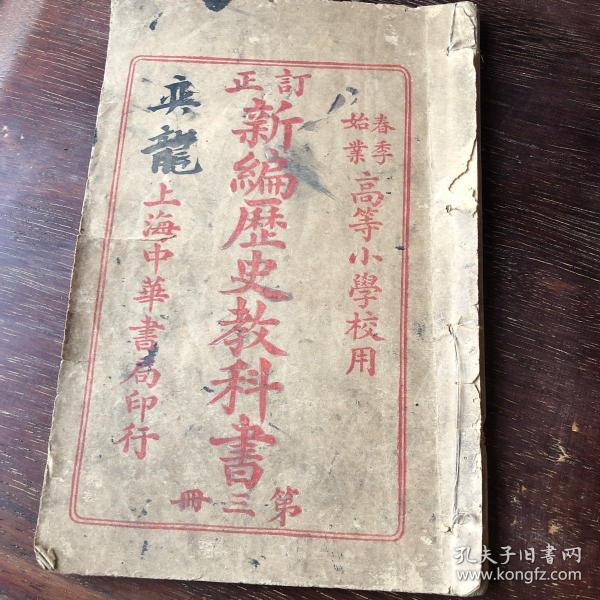 春季始業
高等小學校用
訂正
新編歷史教科書
第三冊
上海中華書局印行
孔夫子旧书网
www.kongfz.com